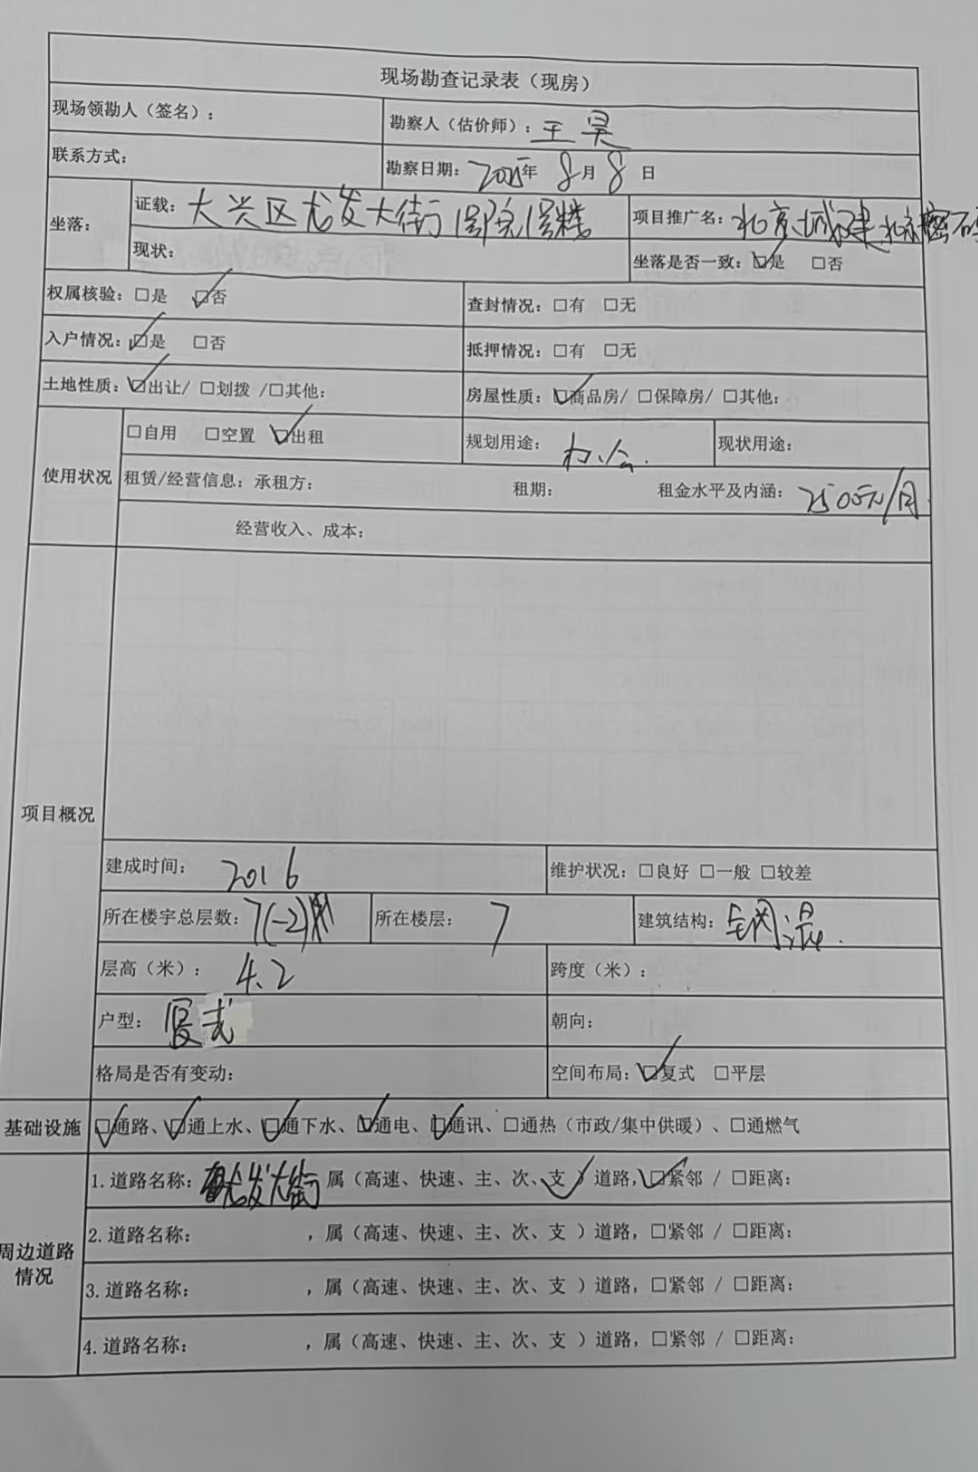 现场勘查记录表（现房）
现场领勘人（签名）：
勘察人（估价师）：王昊
联系方式：
勘察日期：2025年8月8日
坐落：
证载：大兴区龙发大街
项目推广名：北京城建·北京密码
现状：
坐落是否一致：☑是 □否
权属核验：□是 ☑否
查封情况：□有 □无
入户情况：☑是 □否
抵押情况：□有 □无
土地性质：☑出让/ □划拨 /□其他：
房屋性质：☑商品房/ □保障房/ □其他：
使用状况
□自用 □空置 ☑出租
规划用途：办公.
现状用途：
租赁/经营信息：承租方： 租期： 租金水平及内涵：2500元/月.
经营收入、成本：
项目概况
建成时间：2016
维护状况：□良好 □一般 □较差
所在楼宇总层数：7(-2)
所在楼层：7
建筑结构：钢混.
层高（米）：4.2
跨度（米）：
户型：复式
朝向：
格局是否有变动：
空间布局：☑复式 □平层
基础设施
☑通路、☑通上水、☑通下水、☑通电、☑通讯、□通热（市政/集中供暖）、□通燃气
周边道路情况
1.道路名称：龙发大街 属（高速、快速、主、次、支✓）道路，☑紧邻 / □距离：
2.道路名称： ，属（高速、快速、主、次、支 ）道路，□紧邻 / □距离：
3.道路名称： ，属（高速、快速、主、次、支 ）道路，□紧邻 / □距离：
4.道路名称： ，属（高速、快速、主、次、支 ）道路，□紧邻 / □距离：